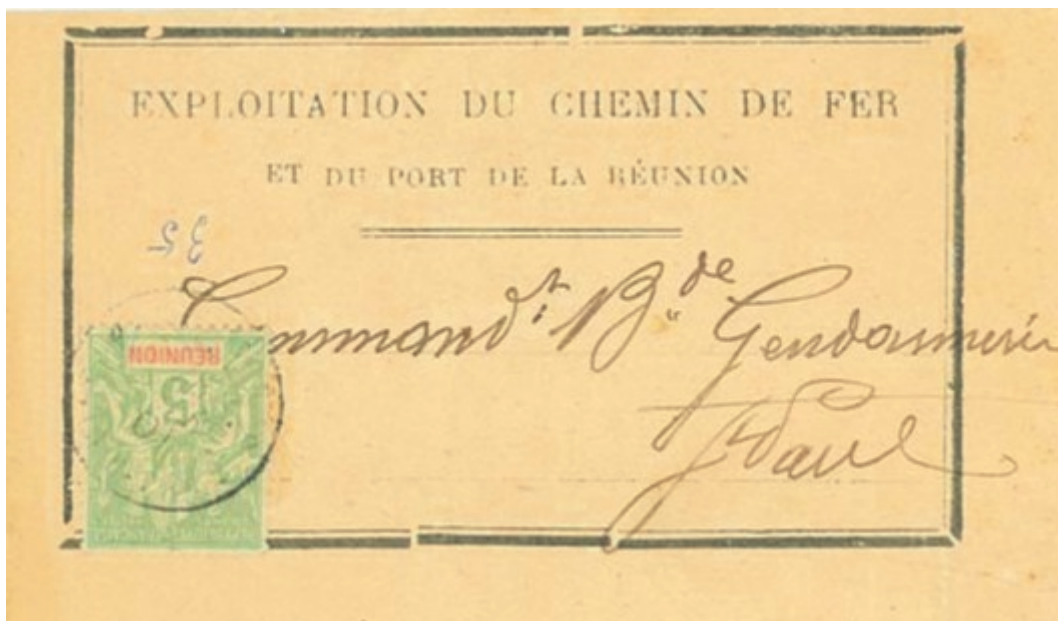 EXPLOITATION DU CHEMIN DE FER
ET DU PORT DE LA RÉUNION
35
Command.t B.de Gendarmerie
St Paul
RÉUNION
5